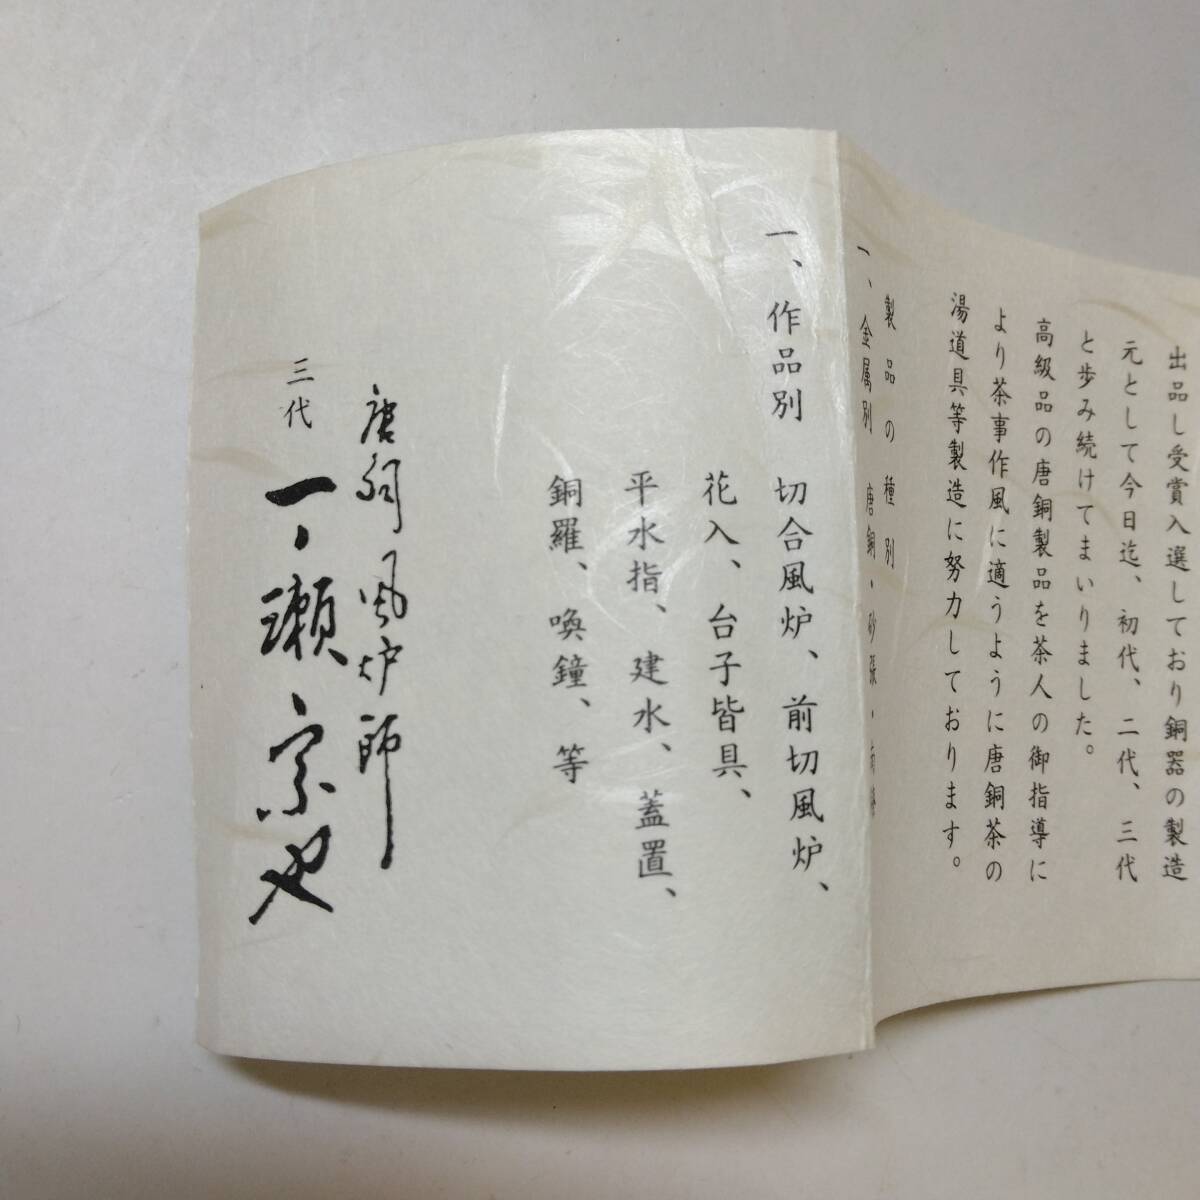 出品し受賞入選しており銅器の製造
元として今日迄、初代、二代、三代
と歩み続けてまいりました。
高級品の唐銅製品を茶人の御指導に
より茶事作風に適うように唐銅茶の
湯道具等製造に努力しております。
製品の種別
一、金属別 唐銅・砂張・
一、作品別 切合風炉、前切風炉、
花入、台子皆具、
平水指、建水、蓋置、
銅羅、喚鐘、等
唐銅風炉師
三代 一ノ瀬宗也